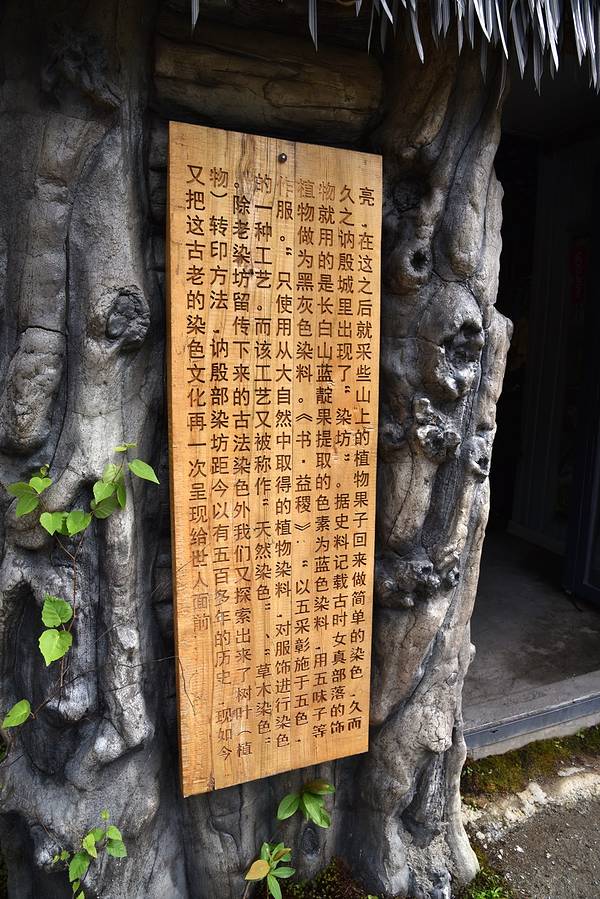 亮，在这之后就采些山上的植物果子回来做简单的染色，久而
久之讷殷城里出现了“染坊”。据史料记载古时女真部落的饰
物就用的是长白山蓝靛果提取的色素为蓝色染料，用五味子等
植物做为黑灰色染料。《书·益稷》：“以五采彰施于五色，
作服。”只使用从大自然中取得的植物染料，对服饰进行染色
的一种工艺。而该工艺又被称作“天然染色”、“草木染色”
。除老染坊留传下来的古法染色外我们又探索出来了树叶（植
物）转印方法，讷殷部染坊距今以有五百多年的历史，现如今
又把这古老的染色文化再一次呈现给世人面前